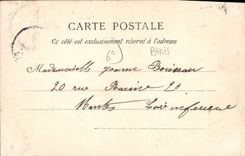 CARTE POSTALE
Ce côté est exclusivement réservé à l'adresse
PARIS
Mademoiselle Jeanne Boiseau
20 rue Racine 20
Nantes Loire inférieure